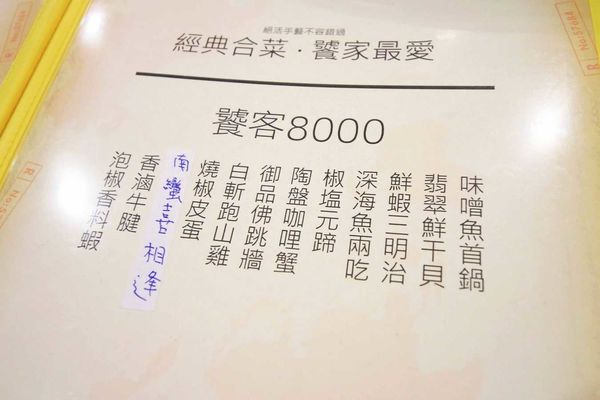 絕活手藝不容錯過
經典合菜·饕家最愛
饕客8000
泡椒香料蝦
香滷牛腱
南蠻喜相逢
燒椒皮蛋
白斬跑山雞
御品佛跳牆
陶盤咖哩蟹
椒塩元蹄
深海魚兩吃
鮮蝦三明治
翡翠鮮干貝
味噌魚首鍋
R
No:57684
R